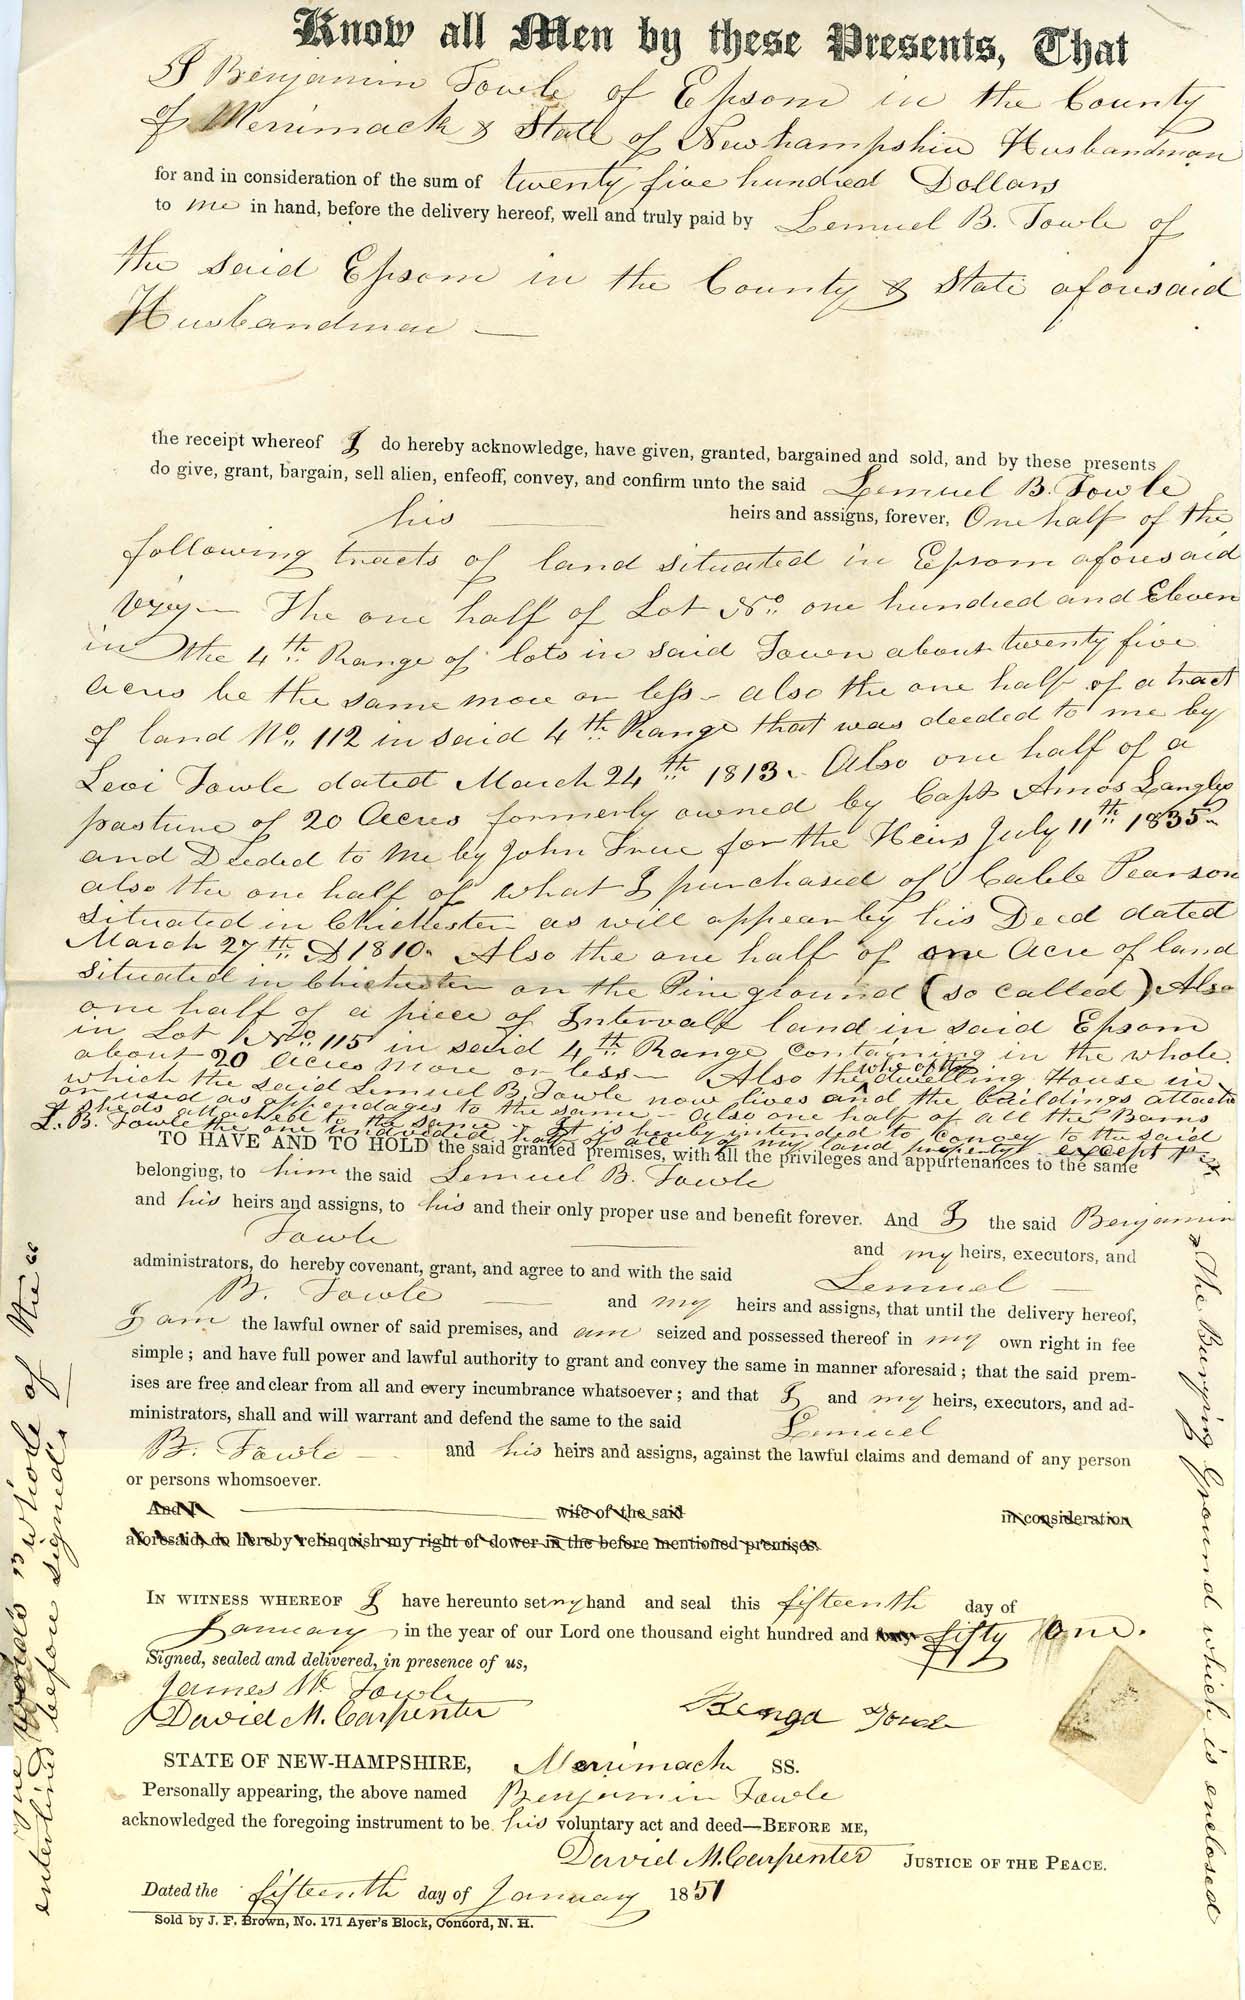 Know all Men by these Presents, That
I Benjamin Towle of Epsom in the County
of Merrimack & State of Newhampshire Husbandman
for and in consideration of the sum of twenty five hundred Dollars
to me in hand, before the delivery hereof, well and truly paid by Lemuel B. Towle of
the said Epsom in the County & State aforesaid
Husbandman
the receipt whereof I do hereby acknowledge, have given, granted, bargained and sold, and by these presents
do give, grant, bargain, sell alien, enfeoff, convey, and confirm unto the said Lemuel B. Towle
his heirs and assigns, forever, One half of the
following tracts of land situated in Epsom aforesaid
The one half of Lot No. one hundred and Eleven
in the 4th Range of lots in said Town about twenty five
acres be the same more or less - also the one half of a tract
of land No. 112 in said 4th Range that was deeded to me by
Levi Towle dated March 24th 1813. Also one half of a
pasture of 20 Acres formerly owned by Capt Amos Langley
and Deeded to me by John True for the Heirs July 11th 1835
also the one half of what I purchased of Caleb Pearson
situated in Chichester as will appear by his Deed dated
March 27th 1810. Also the one half of one Acre of land
situated in Chichester on the Pine ground (so called) Also
one half of a piece of Intervale land in said Epsom
in Lot No. 115 in said 4th Range containing in the whole
about 20 acres more or less - Also the whole of the dwelling House in
which the said Lemuel B. Towle now lives and the buildings attached
or used as appendages to the same - also one half of all the Barns
& sheds attached to the same - It is hereby intended to convey to the said
L. B. Towle the one undivided half of all of my land property except
TO HAVE AND TO HOLD the said granted premises, with all the privileges and appurtenances to the same
belonging, to him the said Lemuel B. Towle
and his heirs and assigns, to his and their only proper use and benefit forever. And I the said Benjamin
Towle and my heirs, executors, and
administrators, do hereby covenant, grant, and agree to and with the said Lemuel
B. Towle and my heirs and assigns, that until the delivery hereof,
I am the lawful owner of said premises, and am seized and possessed thereof in my own right in fee
simple; and have full power and lawful authority to grant and convey the same in manner aforesaid; that the said prem-
ises are free and clear from all and every incumbrance whatsoever; and that I and my heirs, executors, and ad-
ministrators, shall and will warrant and defend the same to the said Lemuel
B. Towle and his heirs and assigns, against the lawful claims and demand of any person
or persons whomsoever.
And I wife of the said in consideration
aforesaid, do hereby relinquish my right of dower in the before mentioned premises.
IN WITNESS WHEREOF I have hereunto set my hand and seal this fifteenth day of
January in the year of our Lord one thousand eight hundred and forty fifty one.
Signed, sealed and delivered, in presence of us,
James W. Towle
David M. Carpenter
Benja Towle
STATE OF NEW-HAMPSHIRE, Merrimack SS.
Personally appearing, the above named Benjamin Towle
acknowledged the foregoing instrument to be his voluntary act and deed—BEFORE ME,
David M. Carpenter JUSTICE OF THE PEACE.
Dated the fifteenth day of January 1851
Sold by J. F. Brown, No. 171 Ayer's Block, Concord, N. H.
The words "whole of the"
enterlined before signed
The Burying Ground which is enclosed